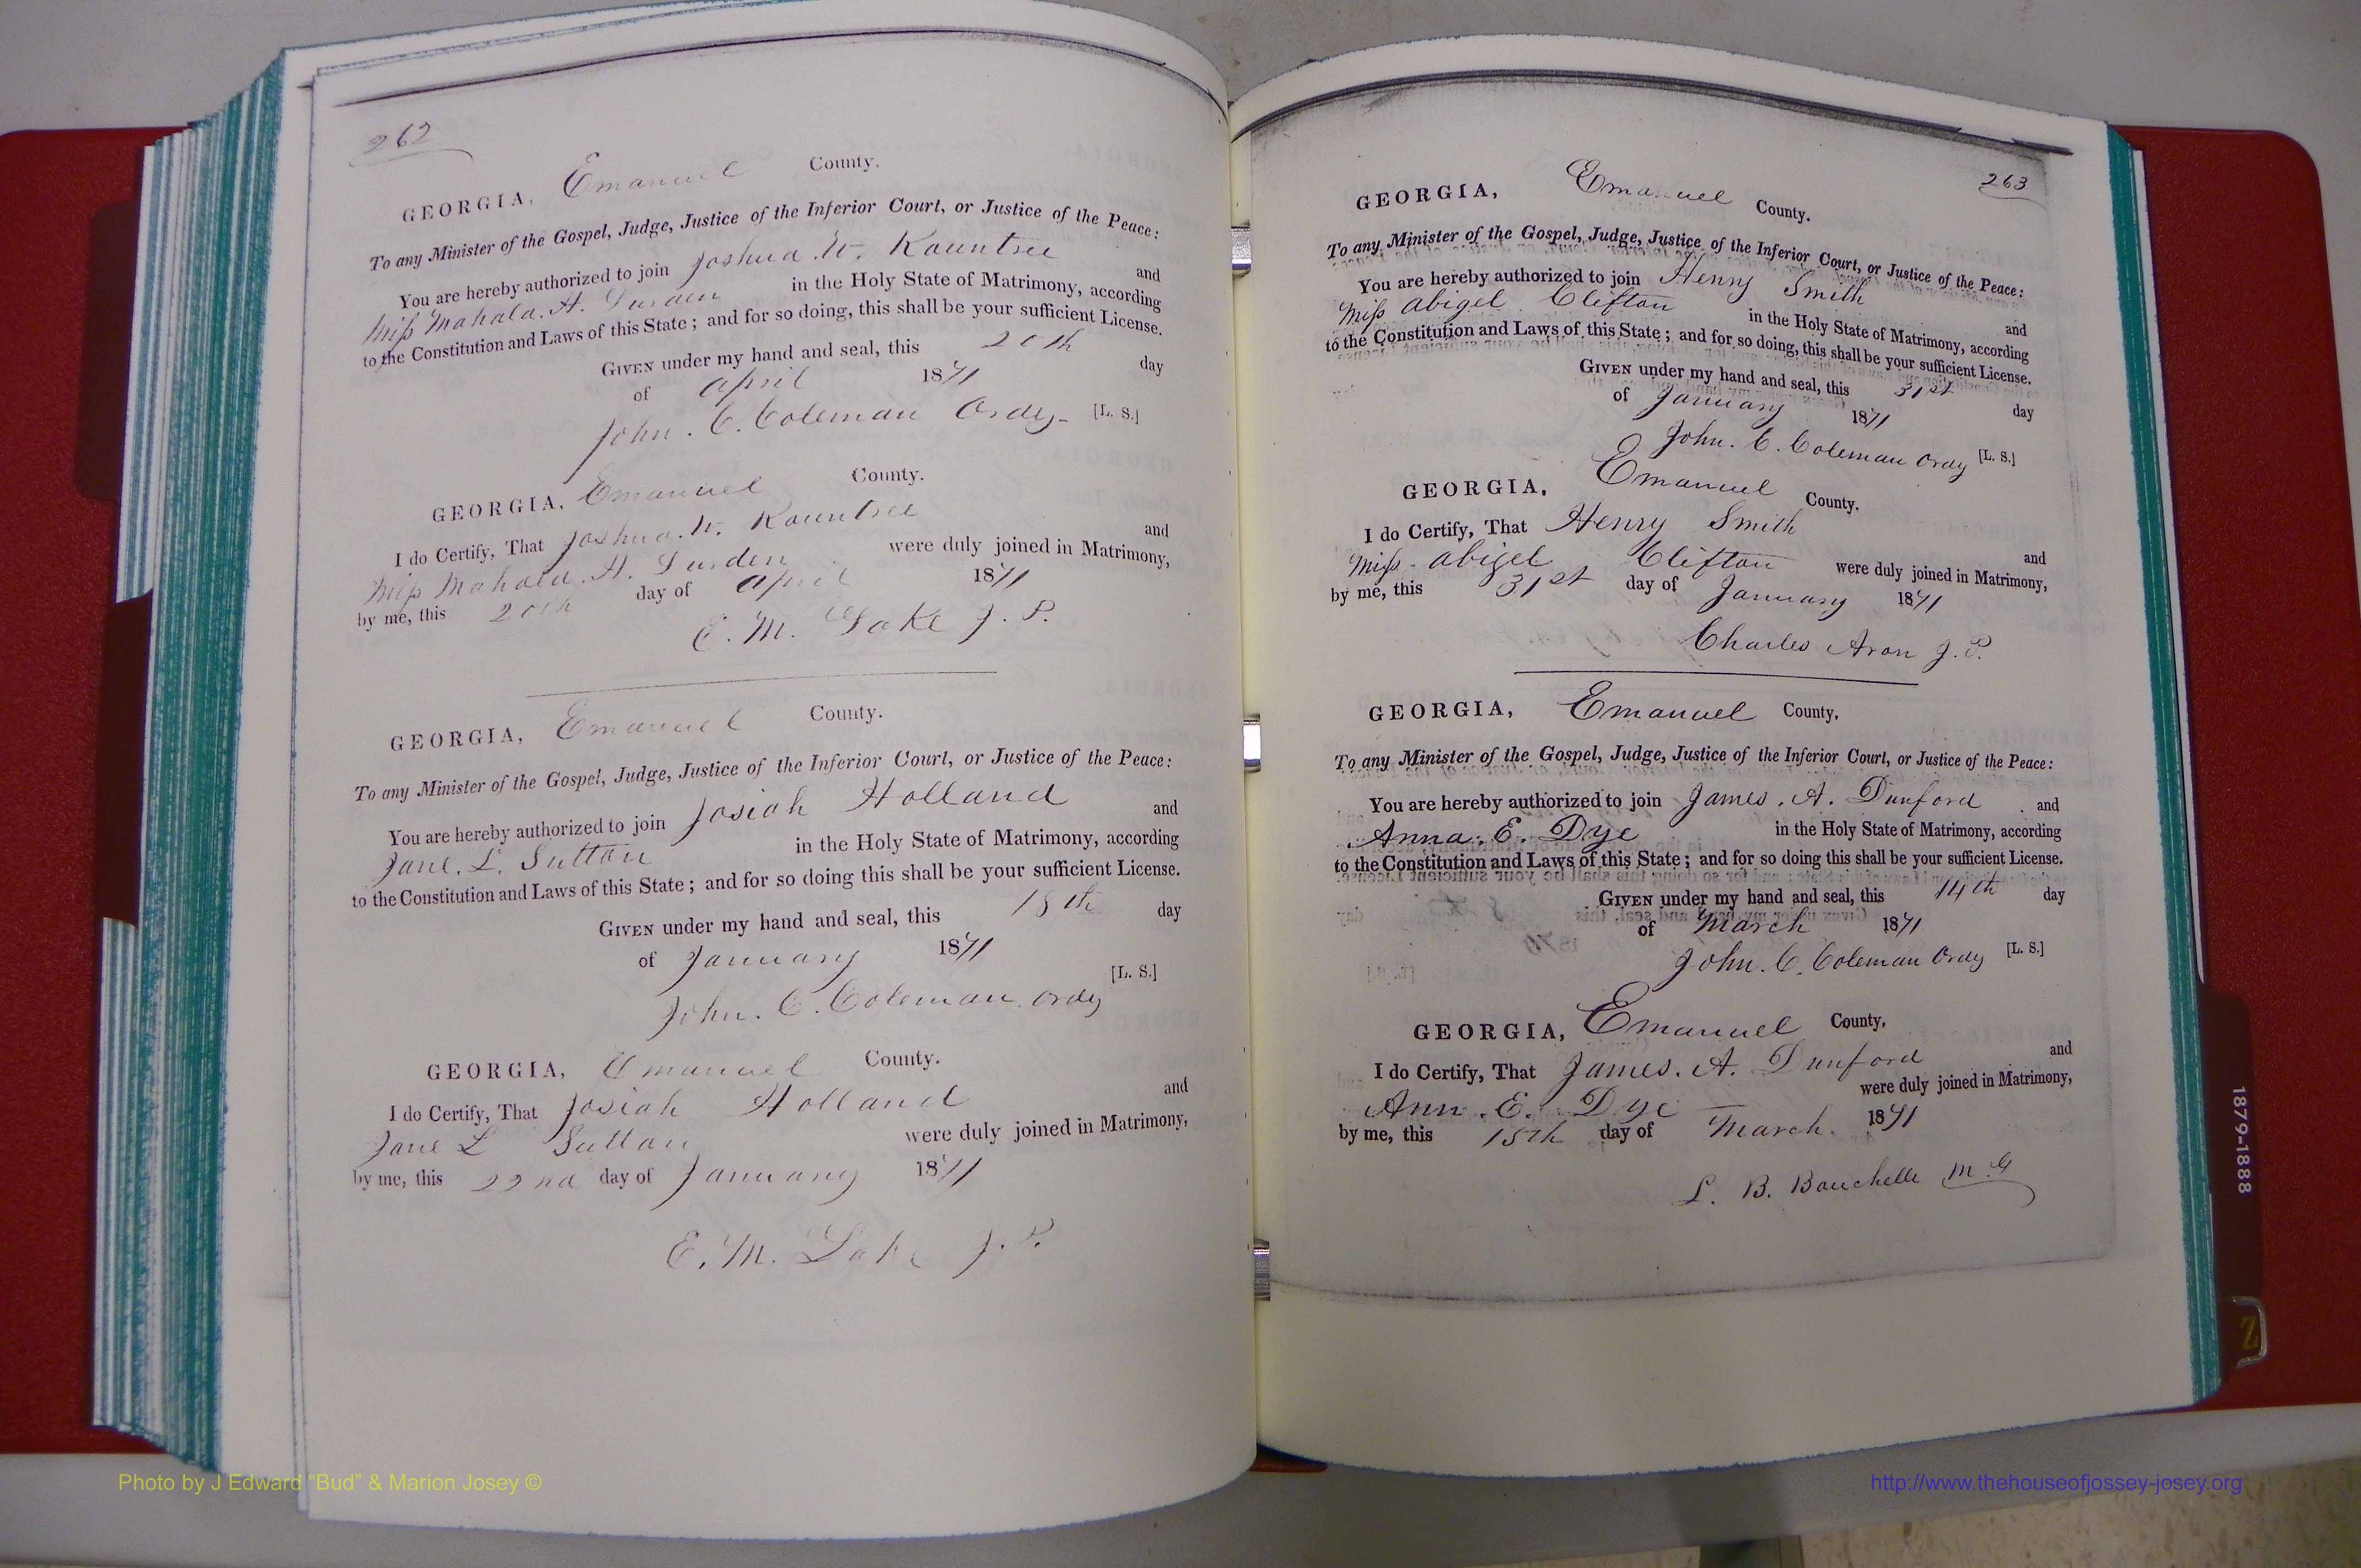 262
GEORGIA, Emanuel County.
To any Minister of the Gospel, Judge, Justice of the Inferior Court, or Justice of the Peace:
You are hereby authorized to join Joshua. W. Rountree and
Miss Mahala. A. Durden in the Holy State of Matrimony, according
to the Constitution and Laws of this State; and for so doing, this shall be your sufficient License.
GIVEN under my hand and seal, this 20th day
of april 1871
John. C. Coleman Ordy- [L. S.]
GEORGIA, Emanuel County.
I do Certify, That Joshua. W. Rountree and
Miss Mahala. A. Durden were duly joined in Matrimony,
by me, this 20th day of april 1871
E. M. Lake J. P.
GEORGIA, Emanuel County.
To any Minister of the Gospel, Judge, Justice of the Inferior Court, or Justice of the Peace:
You are hereby authorized to join Josiah Holland and
Jane. L. Sutton in the Holy State of Matrimony, according
to the Constitution and Laws of this State; and for so doing this shall be your sufficient License.
GIVEN under my hand and seal, this 18th day
of January 1871
[L. S.]
John. C. Coleman. ordy
GEORGIA, Emanuel County.
I do Certify, That Josiah Holland and
Jane L Sutton were duly joined in Matrimony,
by me, this 22nd day of January 1871
E. M. Lake J. P.
263
GEORGIA, Emanuel County.
To any Minister of the Gospel, Judge, Justice of the Inferior Court, or Justice of the Peace:
You are hereby authorized to join Henry Smith and
Miss abigel Clifton in the Holy State of Matrimony, according
to the Constitution and Laws of this State; and for so doing, this shall be your sufficient License.
GIVEN under my hand and seal, this 31st day
of January 1871
John. C. Coleman Ordy [L. S.]
GEORGIA, Emanuel County.
I do Certify, That Henry Smith and
Miss. abigel Clifton were duly joined in Matrimony,
by me, this 31st day of January 1871
Charles Aron J. P.
GEORGIA, Emanuel County,
To any Minister of the Gospel, Judge, Justice of the Inferior Court, or Justice of the Peace:
You are hereby authorized to join James. A. Dunford and
Anna. E. Dye in the Holy State of Matrimony, according
to the Constitution and Laws of this State; and for so doing this shall be your sufficient License.
GIVEN under my hand and seal, this 14th day
of March 1871
John. C. Coleman Ordy [L. S.]
GEORGIA, Emanuel County,
I do Certify, That James. A. Dunford and
Ann. E. Dye were duly joined in Matrimony,
by me, this 15th day of March. 1871
L. B. Bouchelle M. G
1879-1888
Z
Photo by J Edward "Bud" & Marion Josey ©
http://www.thehouseofjossey-josey.org